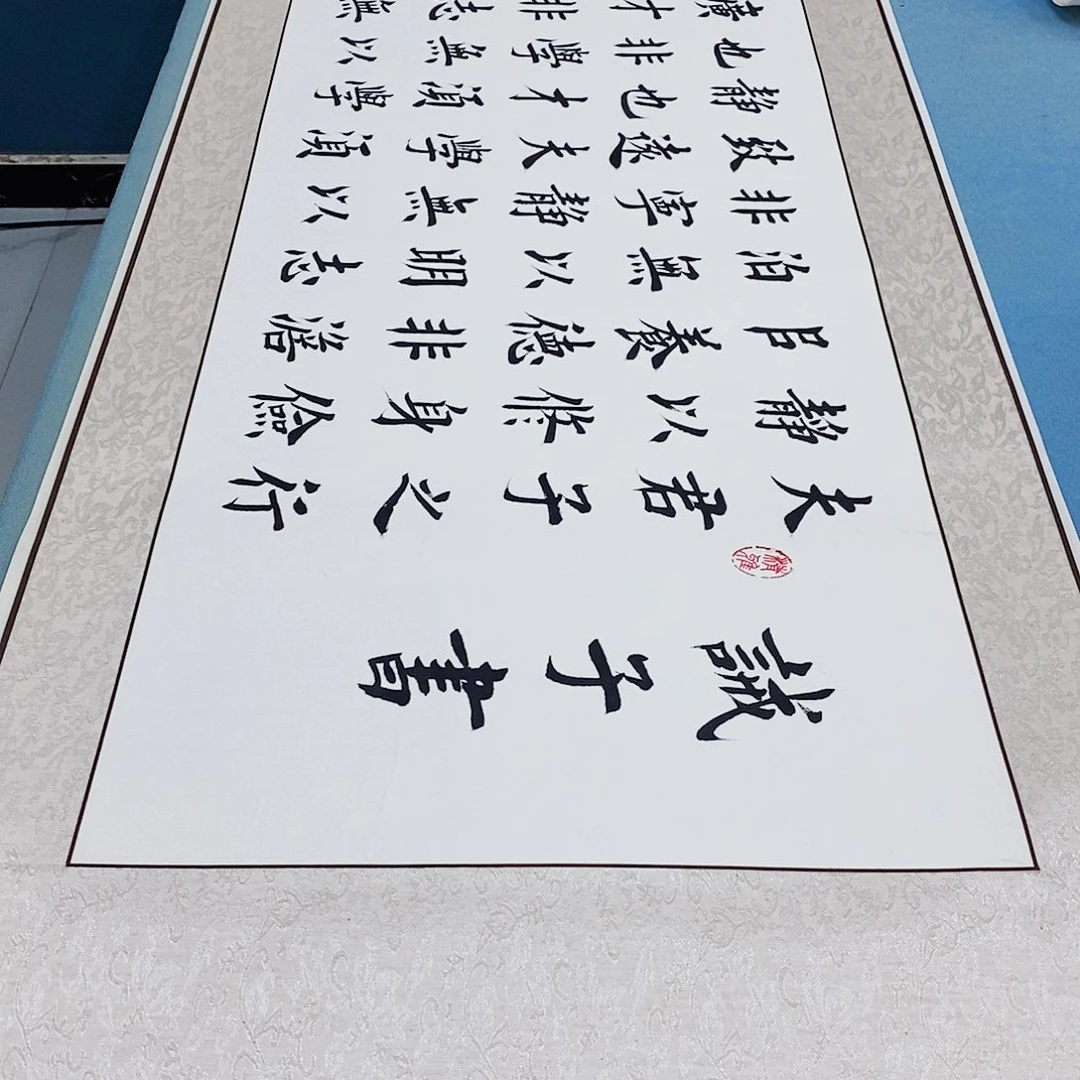 誡子書
夫君子之行
靜以修身儉
㠯養德非澹
泊無以明志
非寧靜無以
致遠夫學須
靜也才須學
也非學無以
廣才非志無